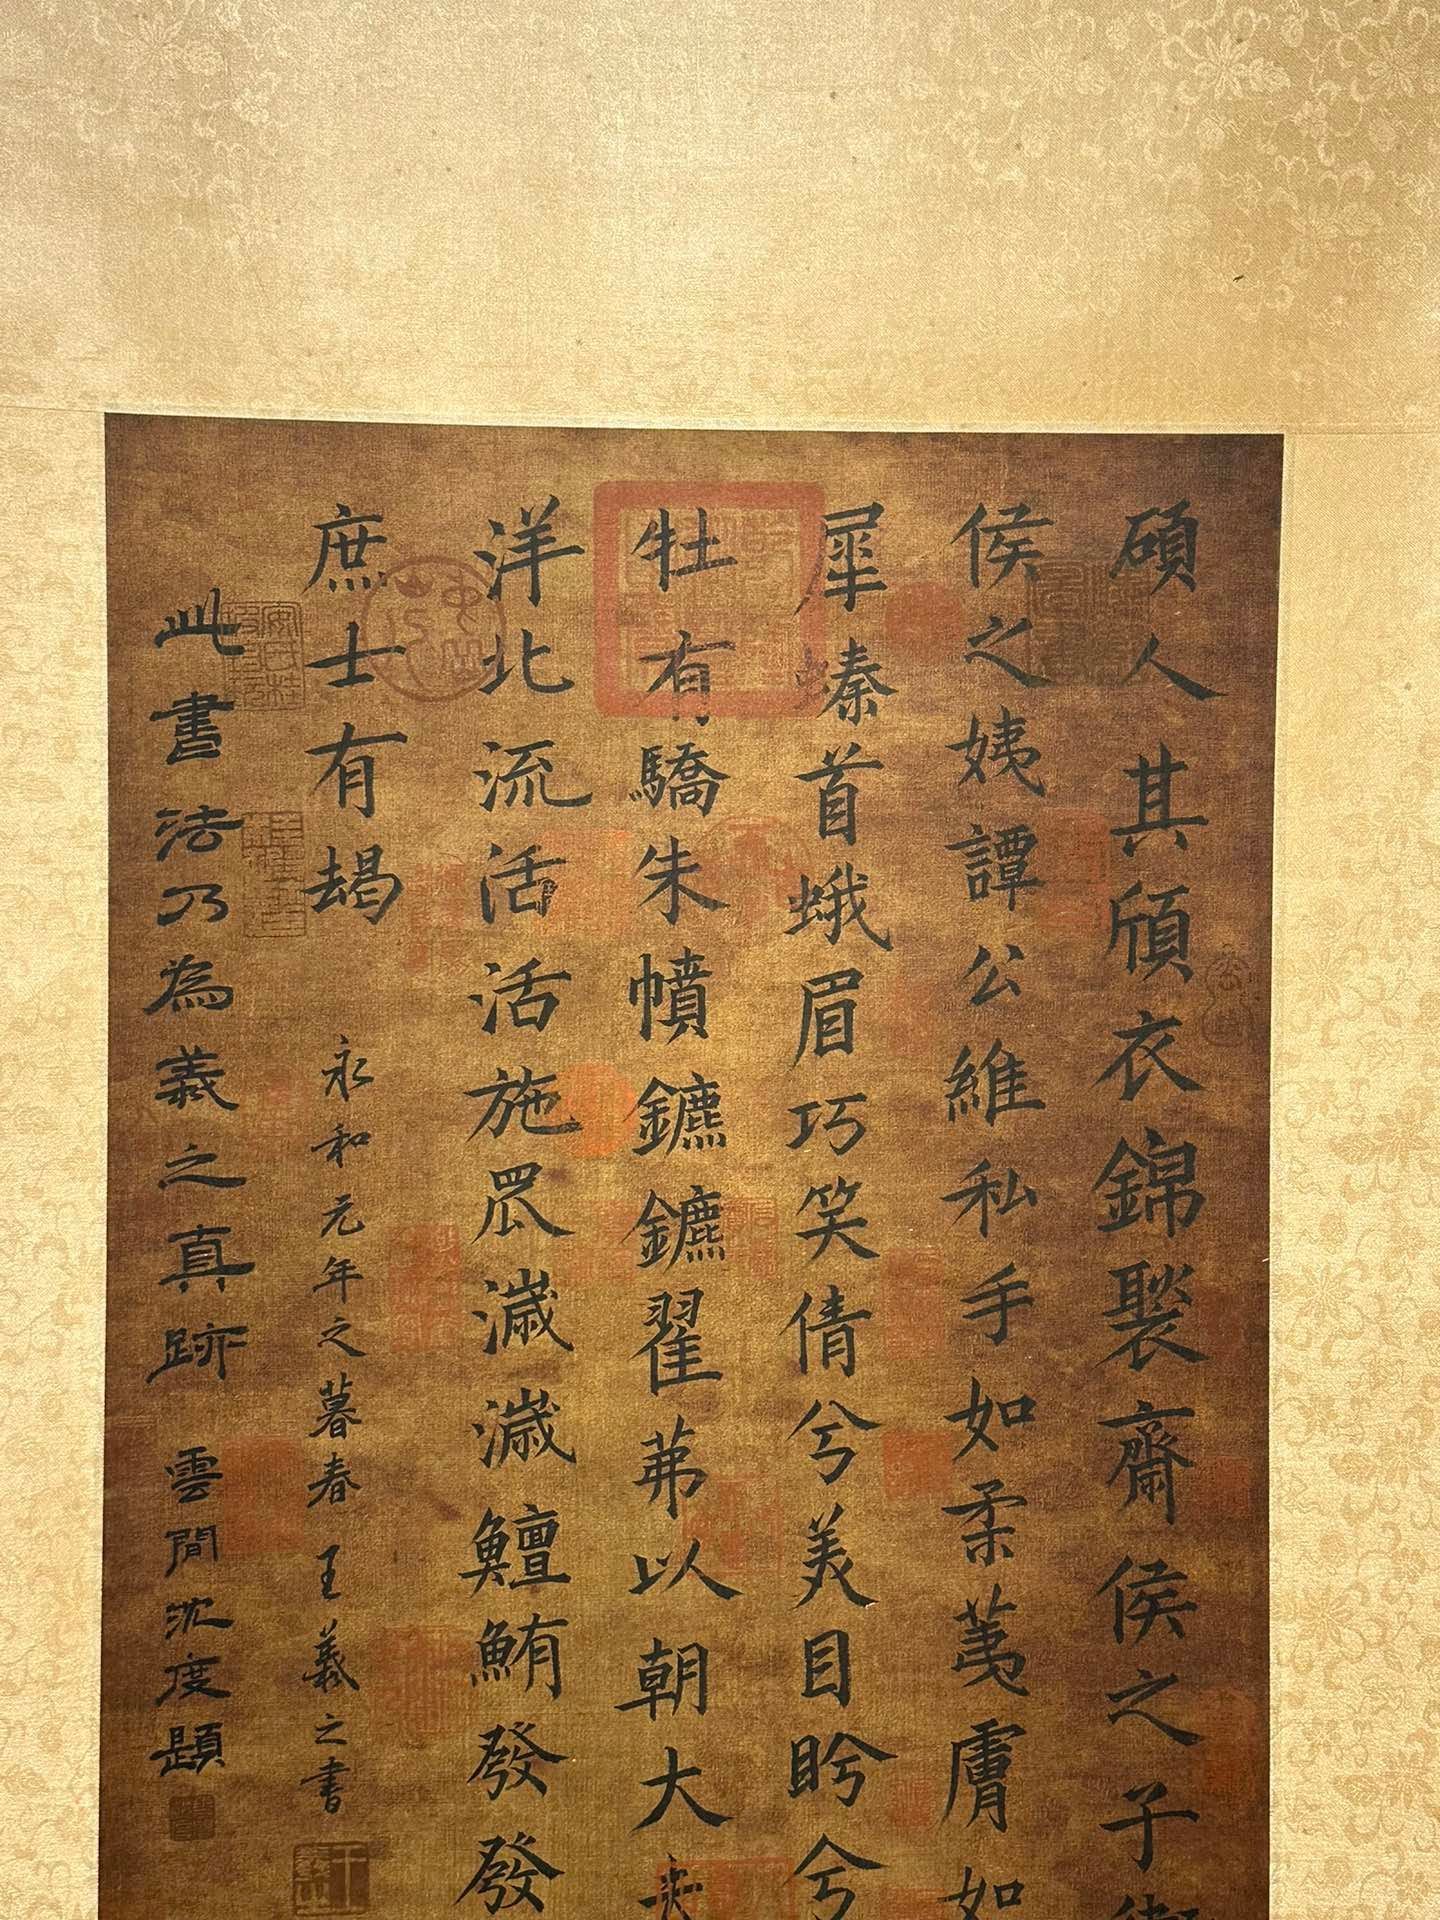 碩人其頎衣錦褧齋侯之子衛
侯之姨譚公維私手如柔荑膚如
犀螓首蛾眉巧笑倩兮美目盼兮
牡有驕朱幩鑣鑣翟茀以朝大夫
洋北流活活施罛濊濊鱣鮪發發
庶士有朅
永和元年之暮春 王羲之書
此書法乃為羲之真跡 雲間沈度題